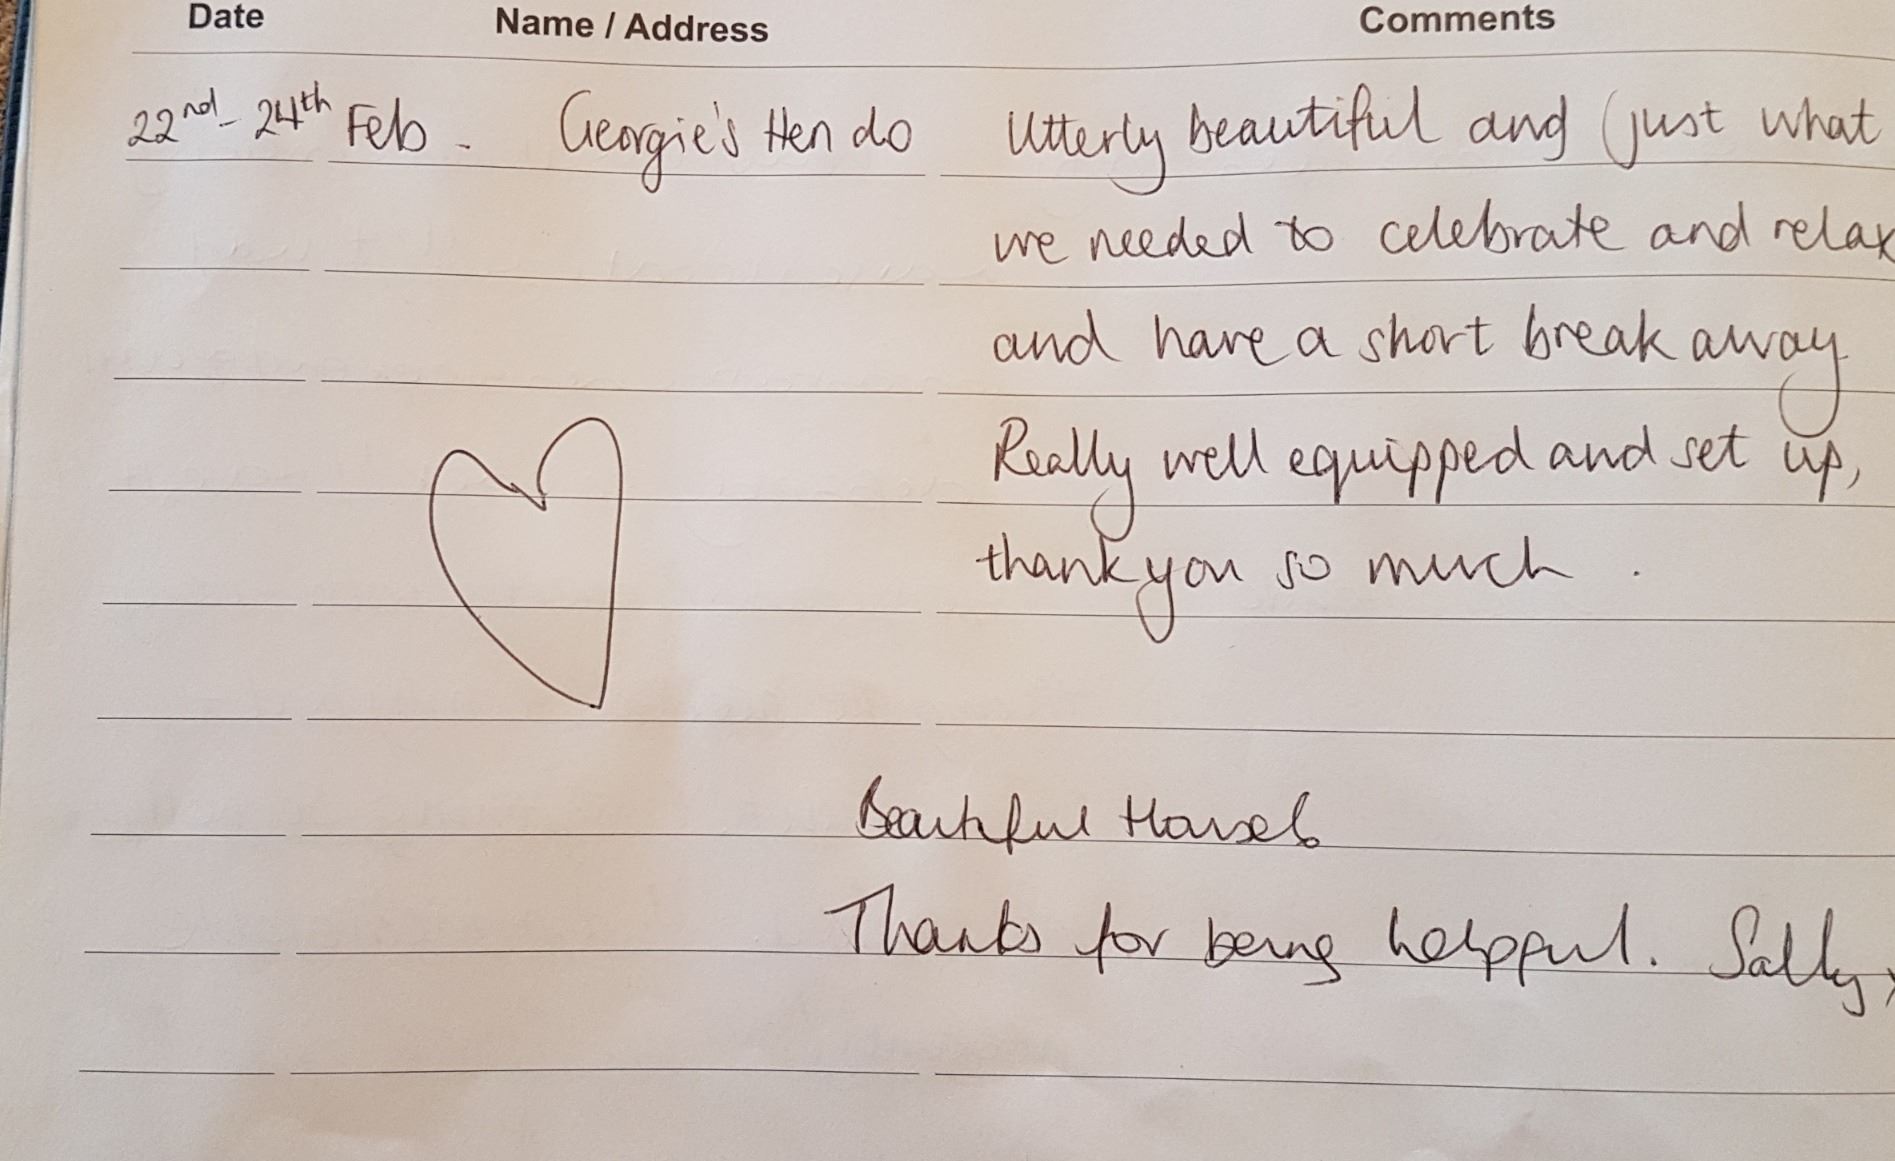 Date Name / Address Comments
22nd - 24th Feb - Georgie's Hen do Utterly beautiful and just what
we needed to celebrate and relax
and have a short break away
Really well equipped and set up,
thank you so much .
Beautiful House
Thanks for being helpful. Sally x